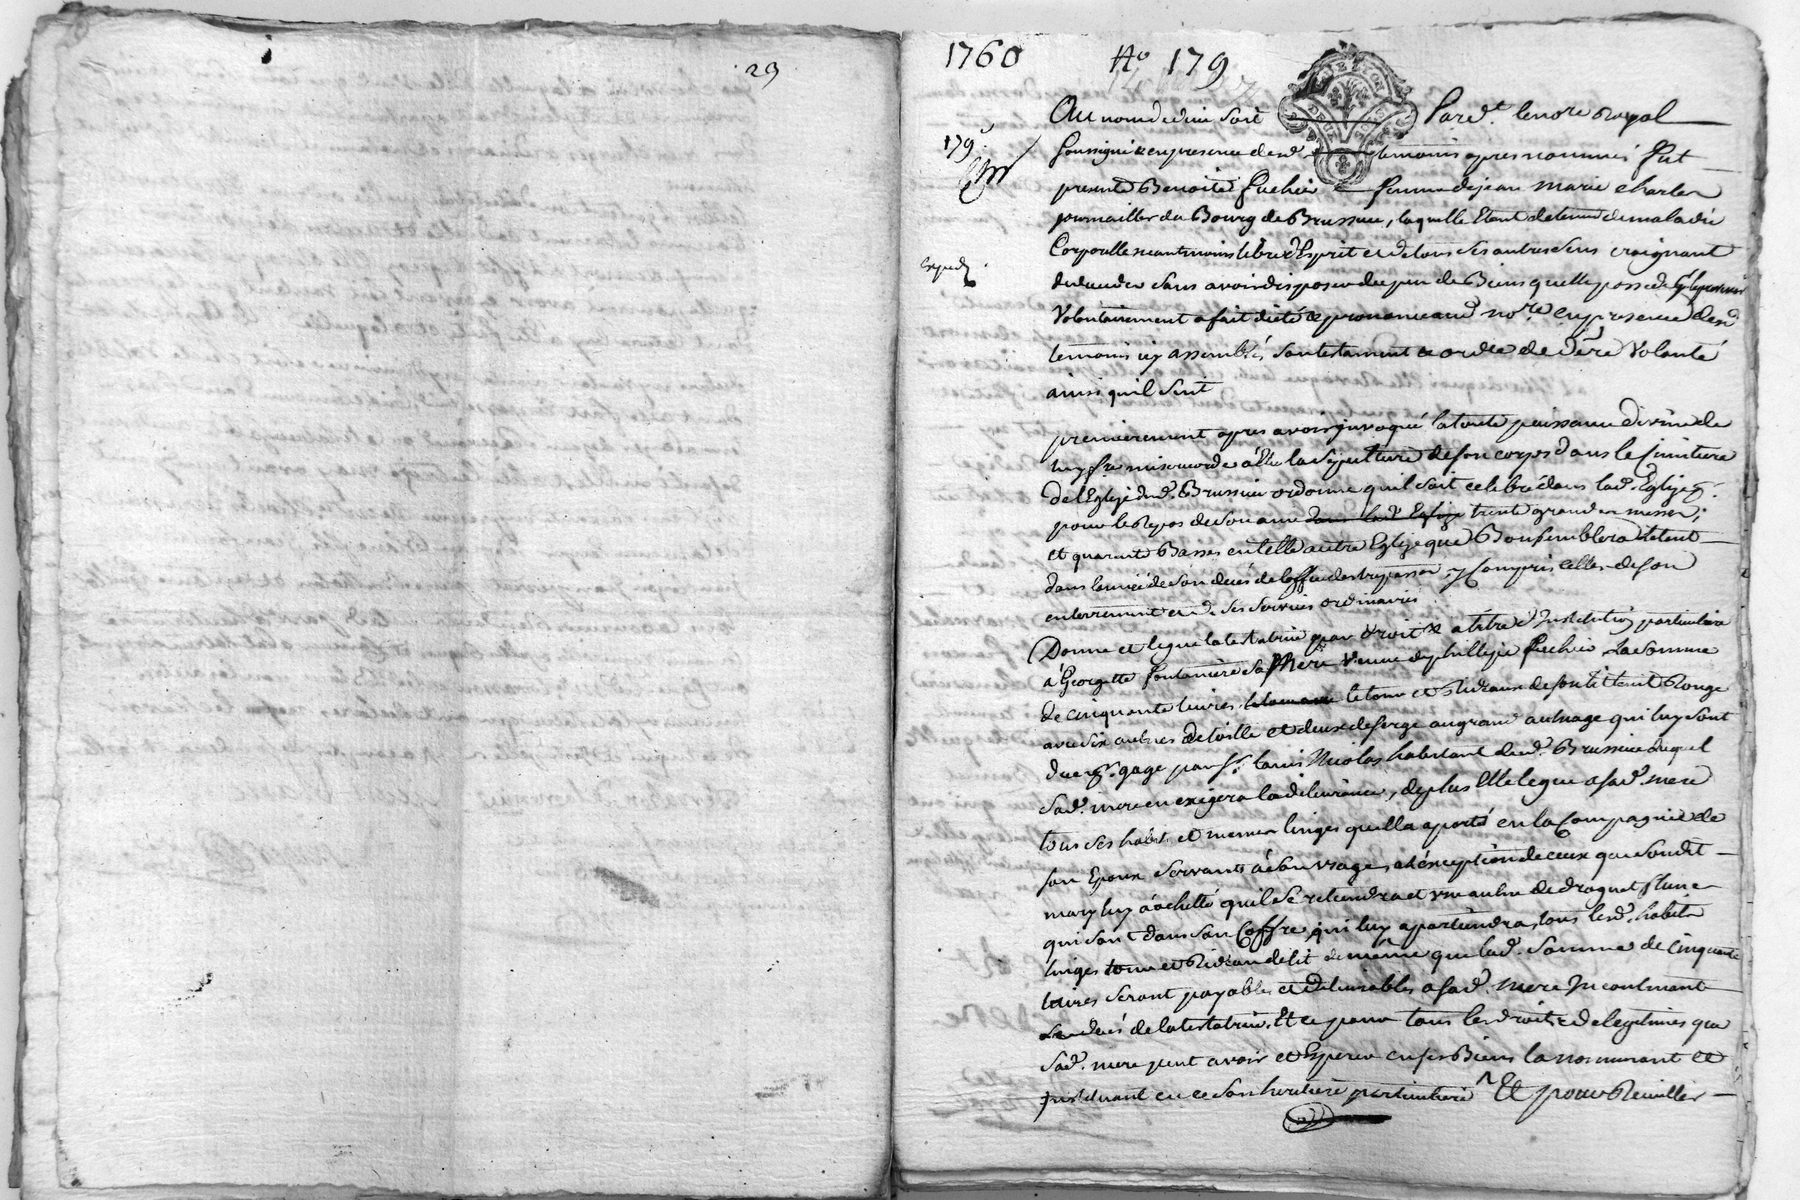 29
1760 No 179
Au nom de dieu soit Pard.t le no.re Royal
179.e
soussigné & en presence des d. temoins apres nommés fut
presente Benoite fuchier femme de jean marie charles
journaillier du Bourg de Brussieu, laquelle Etant detenue de maladie
Corporelle neantmoins libre d'Esprit et de tous ses autres sens craignant
Exped.
de deceder sans avoir disposer du peu de Biens quelle possede
Volontairement a fait dicté & prononcé aud. no.re en presence des d.
temoins icy assemblés son testament & ordre de d.ere Volonté
ainsi quil suit
premierement apres avoir invoqué la toute puissance divine de
luy fre misericorde a Elu la sepulture de son corps dans le cimitiere
de l'Eglize dud. Brussieu ordonne quil soit celebré dans lad. Eglize
pour le Repos de son ame dans lad. Eglize trente grandes messes,
et quarante Basses en telle autre Eglize que Bon semblera le tout
dans l'année de son decés de l'office des trepassés, y Compris celles de son
enterrement et d. ses services ordinaires
Donne et legue la testatrice par droit & a titre d'Institution particuliere
à Georgette fontaniere sa Mere Veuve de phillipe fuchier La somme
de cinquante livres, le tour et Rideaux de son lit teint Rouge
avec six aulnes de toille et deux de serge au grand aulnage qui luy sont
due en gage par sr. Louis Nicolas habitant dud. Brussieu duquel
Sad. mere en exigera la deliurance, de plus Elle legue a sad. mere
tous ses habits et memes linges quella aporté en la Compagnie de
son Epoux servants à son usage, a l'exception de ceux que sondit
mary luy à achetté quil se retiendra et une aulne de droguet
qui sont dans son Coffre, qui luy apartiendra, tous lesd. habits
linges tour et Rideau de lit de même que lad. somme de Cinquante
livres seront payables et delivrables a sad. mere Incontinant
Le decés de la testatrice, Et ce pour tous les droits de legitimes que
Sad. mere peut avoir et Esperer en ses Biens la nommant et
Instituant en ce son heritiere particuliere Et pour Reuiller